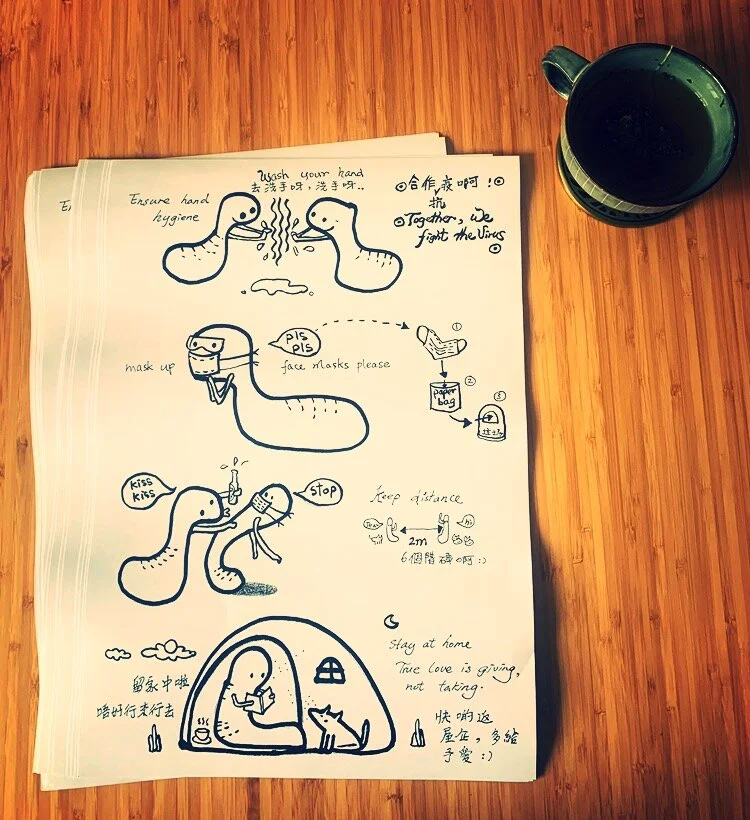 En
Wash your hand
去洗手呀，洗手呀..
Ensure hand
hygiene
合作疫啊！
抗
Together, we
fight the Virus
mask up
pls
pls
face masks please
①
②
paper
bag
③
kiss
kiss
stop
Keep distance
hi
2m
6個階磚啊:)
Stay at home
True love is giving,
not taking.
留家中啦
唔好行來行去
快啲返
屋企，多給
予愛 :)